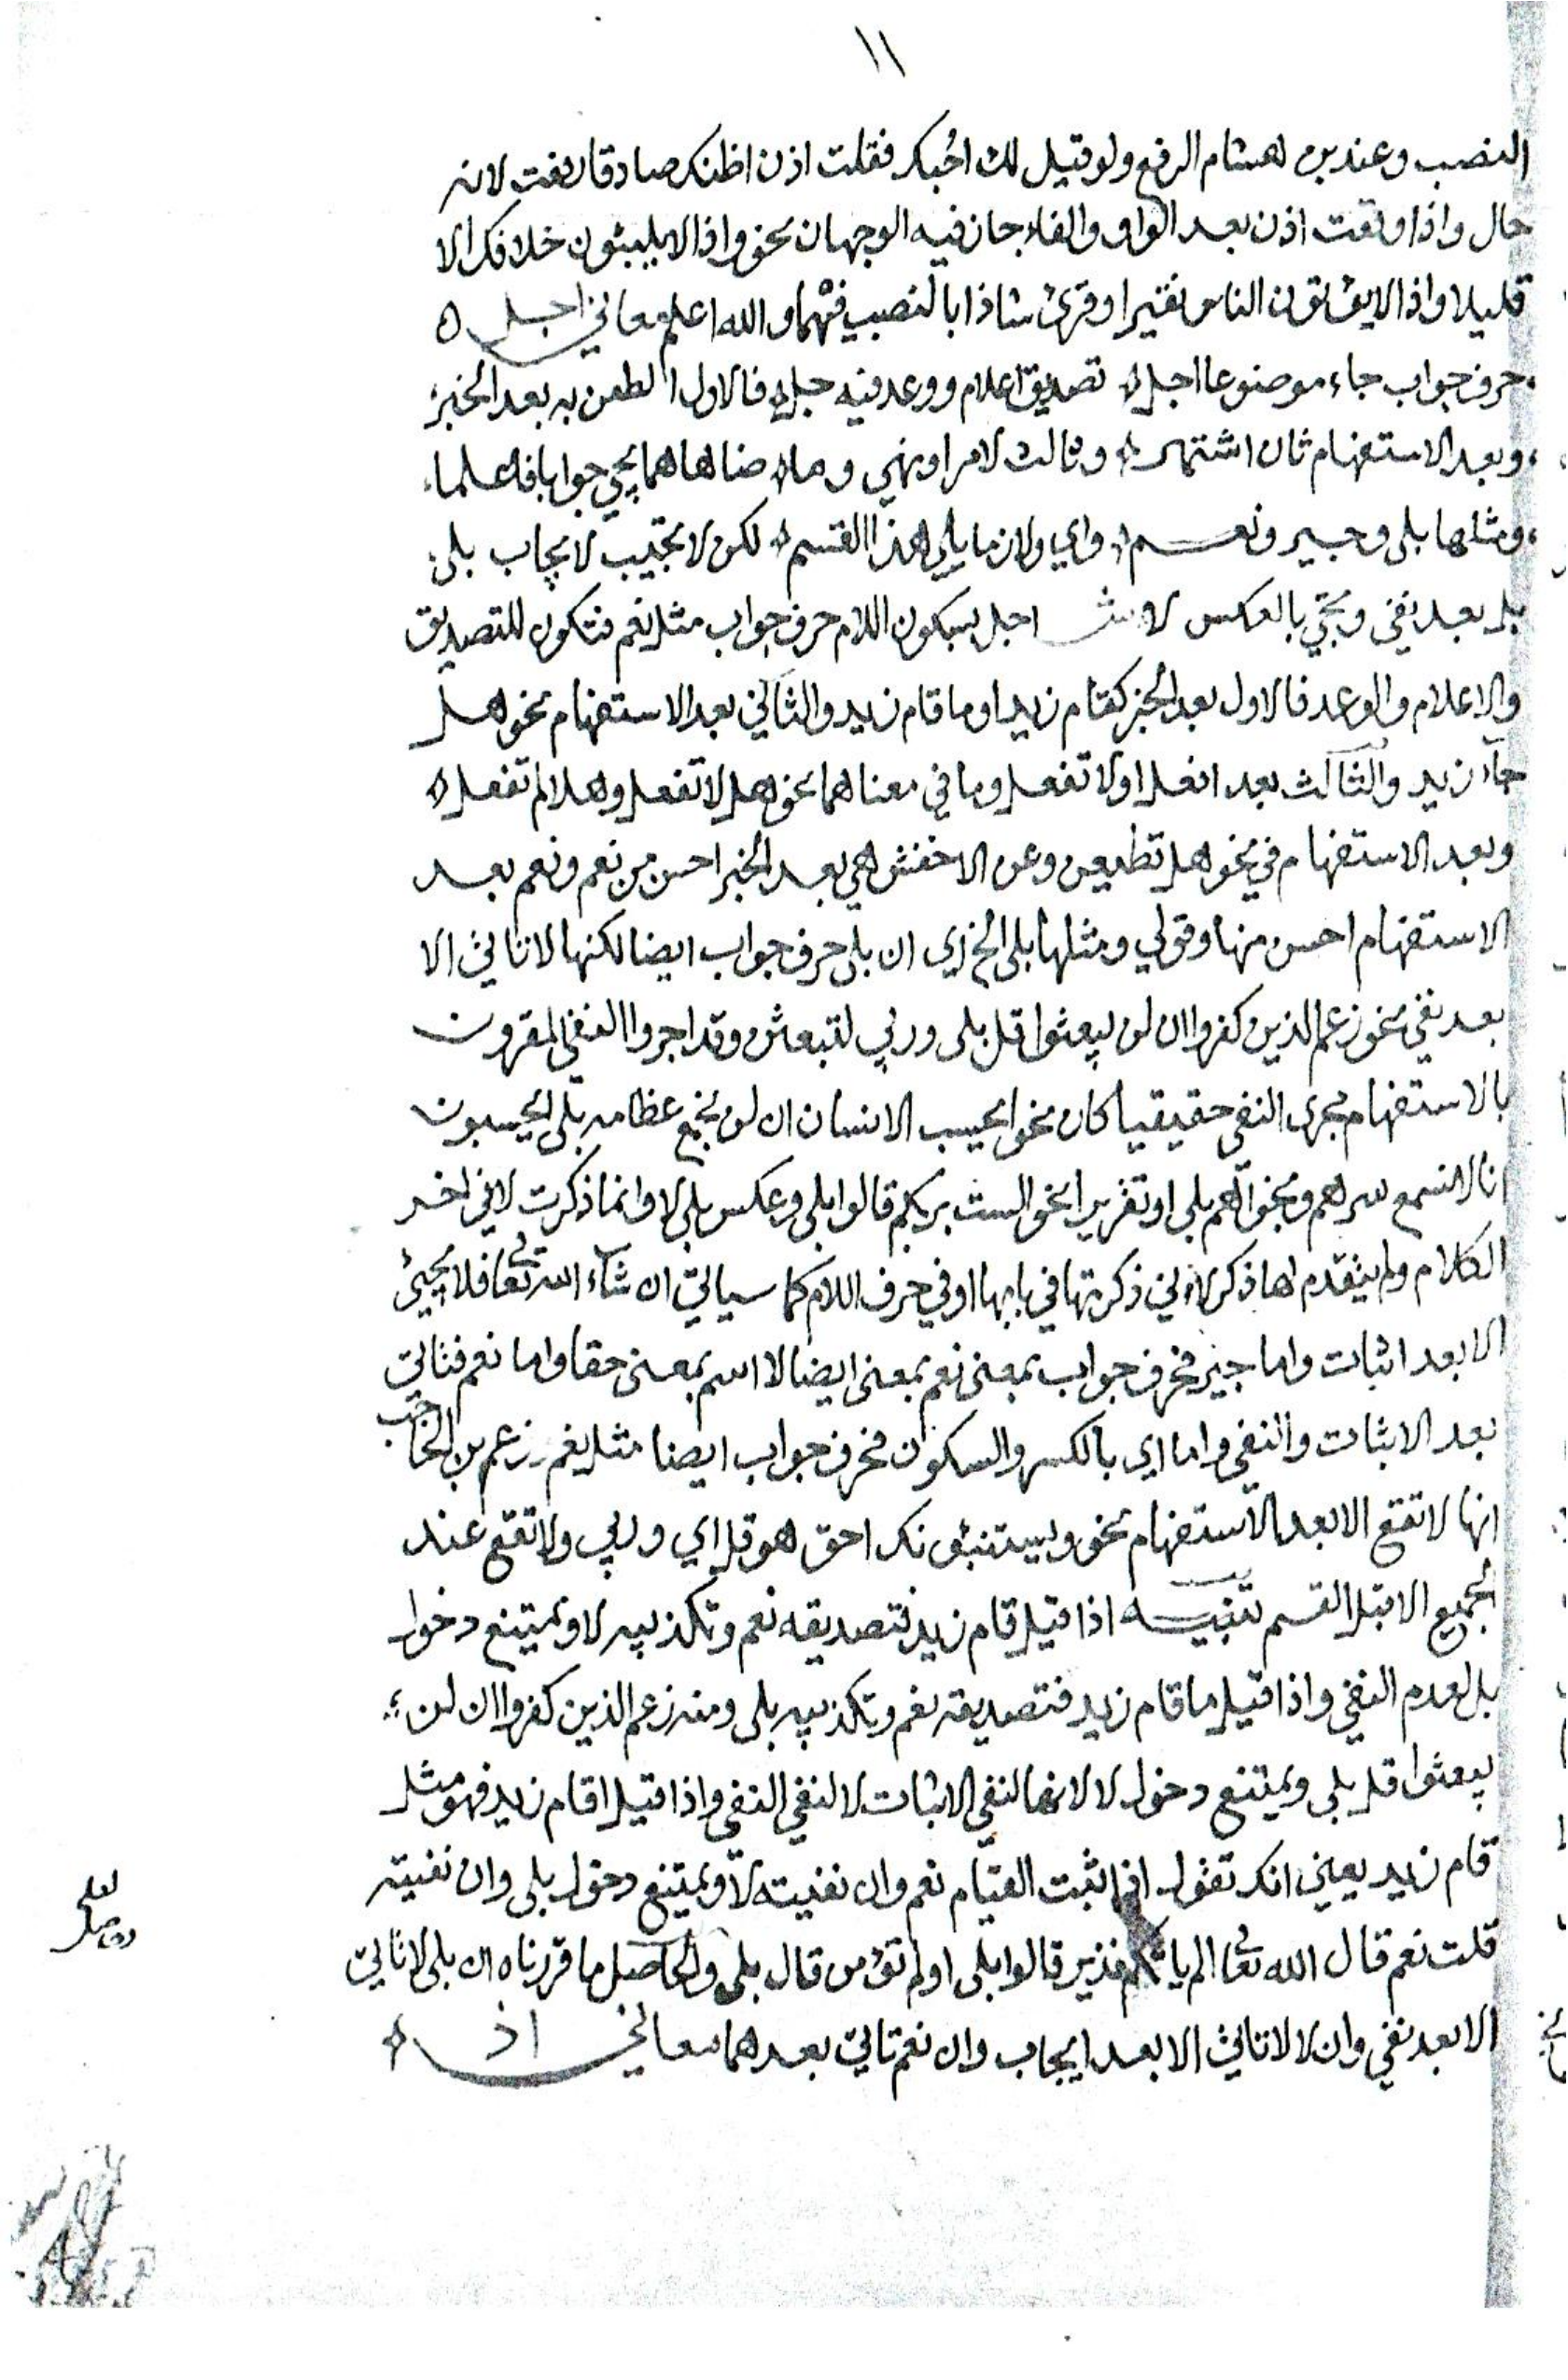 ١١
النصب وعند بن هشام الرفع ولو قيل لك احبك فقلت اذن اظنك صادقا رفعت لانه
حال واذا وقعت اذن بعد الواو والفاء جاز فيه الوجهان نحو واذا لا يلبثون خلافك الا
قليلا واذا لا يؤتون الناس نقيرا وقرئ شاذا بالنصب فيهما والله اعلم معاني اجل ٥
حرف جواب جاء موضوعا اجل تصديق اعلام ووعد فيه جل فالاول به بعد الخبر
وبعد الاستفهام ثان اشتهر وثالث لامر او نهي وما ضاهاهما يجي جوابا فاعلما
ومثلها بلى وجير ونعم واي ولازما يلي هذا القسم لكن لا تجيب لايجاب بلى
بل بعد نفي وتجي بالعكس لا ش اجل بسكون اللام حرف جواب مثل نعم فتكون للتصديق
والاعلام والوعد فالاول بعد الخبر كقام زيد او ما قام زيد والثاني بعد الاستفهام نحو هل
جاء زيد والثالث بعد افعل او لا تفعل وما في معناهما نحو هل لا تفعل وهلا لم تفعل
وبعد الاستفهام في نحو هل تطيعن وعن الاخفش هي بعد الخبر احسن من نعم ونعم بعد
الاستفهام احسن منها وقولي ومثلها بلى الخ اي ان بلى حرف جواب ايضا لكنها لا تاتي الا
بعد نفي نحو زعم الذين كفروا ان لن يبعثوا قل بلى وربي لتبعثن وقد اجروا النفي المقرون
بالاستفهام مجرى النفي حقيقيا كان نحو ايحسب الانسان ان لن نجمع عظامه بلى ايحسبون
انا لا نسمع سرهم ونجواهم بلى او تقريرا نحو الست بربكم قالوا بلى وعكس بلى لا وانما ذكرت لا في اخر
الكلام ولم يتقدم لها ذكر لاني ذكرتها في بابها او في حرف اللام كما سياتي ان شاء الله تعا فلا يجيئ
الا بعد اثبات واما جير فحرف جواب بمعنى نعم بمعنى ايضا لا اسم بمعنى حقا واما نعم فتاتي
بعد الاثبات والنفي واما اي بالكسر والسكون فحرف جواب ايضا مثل نعم زعم بن الحاجب
انها لا تقع الا بعد الاستفهام نحو ويستنبئونك احق هو قل اي وربي ولا تقع عند
الجميع الا قبل القسم تنبيه اذا قيل قام زيد فتصديقه نعم وتكذيبه لا ويمتنع دخول
بل لعدم النفي واذا قيل ما قام زيد فتصديقه نعم وتكذيبه بلى ومنه زعم الذين كفروا ان لن
يبعثوا قل بلى ويمتنع دخول لا لانها لنفي الاثبات لا لنفي النفي واذا قيل اقام زيد فهو مثل
قام زيد يعني انك تقول اذا اثبت القيام نعم وان نفيته لا ويمتنع دخول بلى وان نفيته
قلت نعم قال الله تعا الم ياتكم نذير قالوا بلى اولم تؤمن قال بلى والحاصل ما قررناه ان بلى لا تاتي
الا بعد نفي وان لا لا تاتي الا بعد ايجاب وان نعم تاتي بعدهما معاني اذ